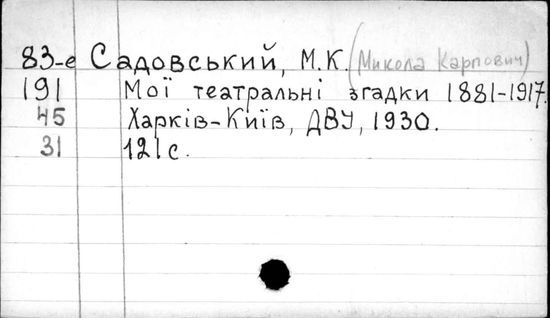 83-е Садовський, М.К. (Микола Карпович)
191 Мої театральні згадки 1881-1917.
45 Харків-Київ, ДВУ, 1930.
31 121с.